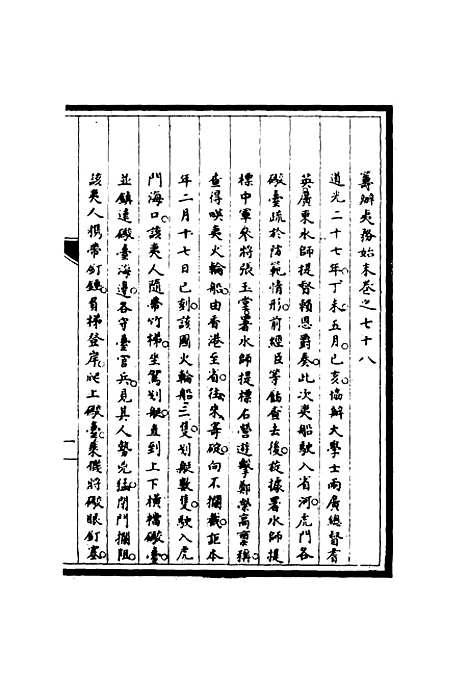 籌辦夷務始末卷之七十八
道光二十七年丁未五月己亥協辦大學士兩廣總督耆
英廣東水師提督賴恩爵奏此次夷船駛入省河虎門各
礮臺疏於防範情形前經臣等飭查去後茲據署水師提
標中軍參將張玉堂署水師提標右營遊擊鄭榮高稟稱
查得㗸夷火輪船由香港至省往來寄碇向不攔截詎本
年二月十七日巳刻該國火輪船三隻划艇數隻駛入虎
門海口該夷人隨帶竹梯坐駕划艇直到上下橫檔礮臺
並鎮遠礮臺海邊各守臺官兵見其人勢兇猛閉門攔阻
該夷人携帶釘鎚負梯登岸爬上礮臺乘機將礮眼釘塞